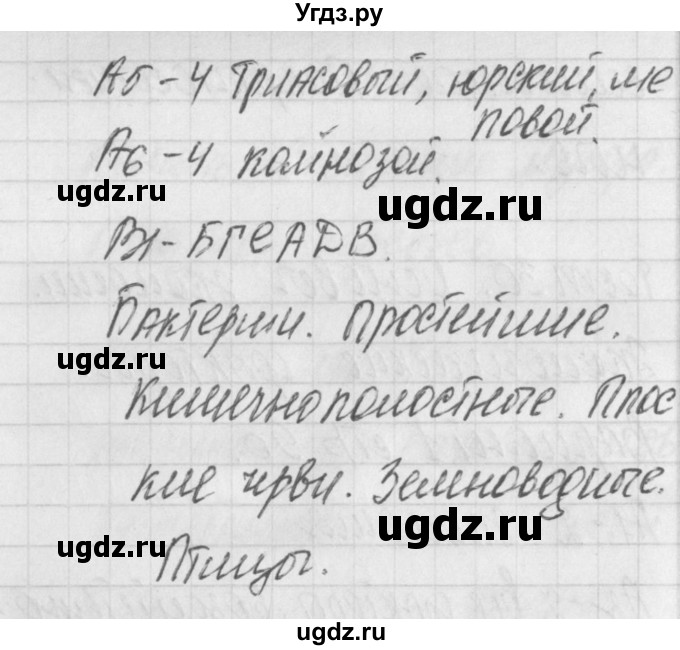 Угдз.ру
А5-4 Триасовый, юрский, ме
ловой.
А6-4 кайнозой.
ugdz.ru
ugdz.ru
В1-БГЕАДВ.
Бактерии. Простейшие.
ugdz.ru
Кишечнополостные. Плос
кие черви. Земноводные.
ugdz.ru
ugdz.ru
Птицы.
ugdz.ru